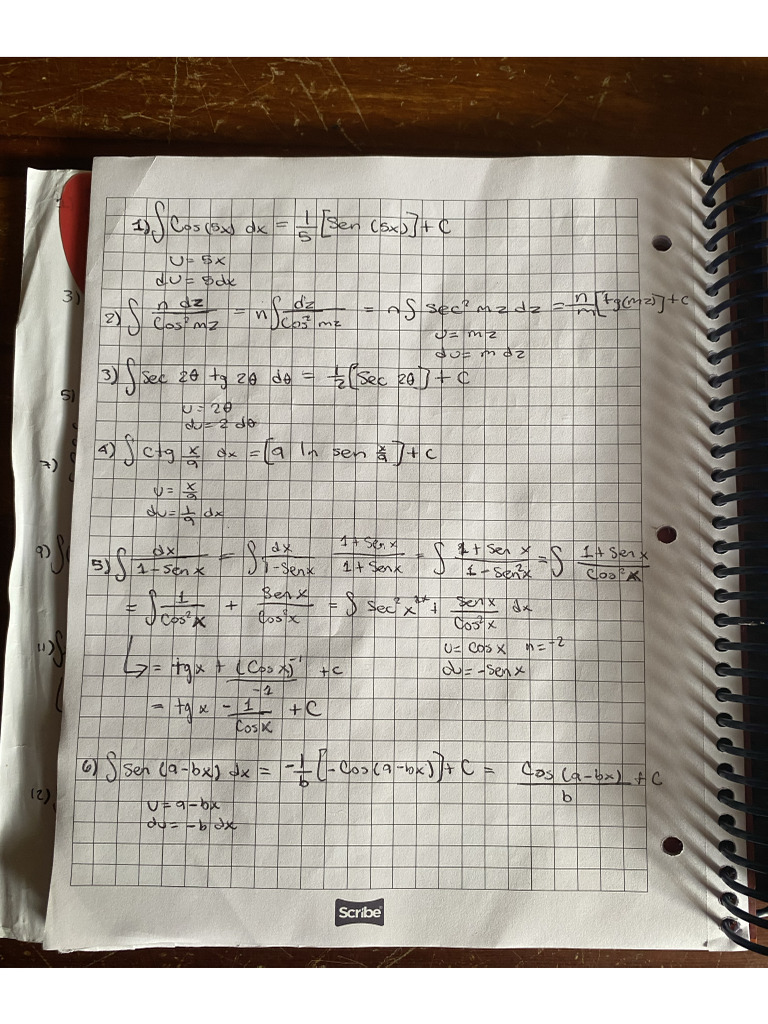 1) ∫ Cos (5x) dx = 1/5 [Sen (5x)] + C
u = 5x
du = 5dx
2) ∫ n dz / Cos² mz = n ∫ dz / Cos² mz = n ∫ sec² mz dz = n/m [tg(mz)] + c
u = mz
du = m dz
3) ∫ Sec 2θ tg 2θ dθ = 1/2 [Sec 2θ] + C
u = 2θ
du = 2 dθ
4) ∫ ctg x/a dx = [a ln sen x/a] + c
u = x/a
du = 1/a dx
5) ∫ dx / 1 - Sen x = ∫ dx / 1 - Sen x 1 + Sen x / 1 + Sen x = ∫ 1 + Sen x / 1 - Sen² x = ∫ 1 + Sen x / Cos² x
= ∫ 1 / Cos² x + Sen x / Cos² x = ∫ Sec² x + Sen x / Cos² x dx
u = cos x n = -2
du = -sen x
↳ = tg x + (Cos x)⁻¹ / -1 + c
= tg x - 1 / Cos x + C
6) ∫ Sen (a-bx) dx = -1/b [-Cos (a-bx)] + C = Cos (a-bx) / b + C
u = a-bx
du = -b dx
Scribe
3)
5)
7)
9) ∫
11) ∫
12)